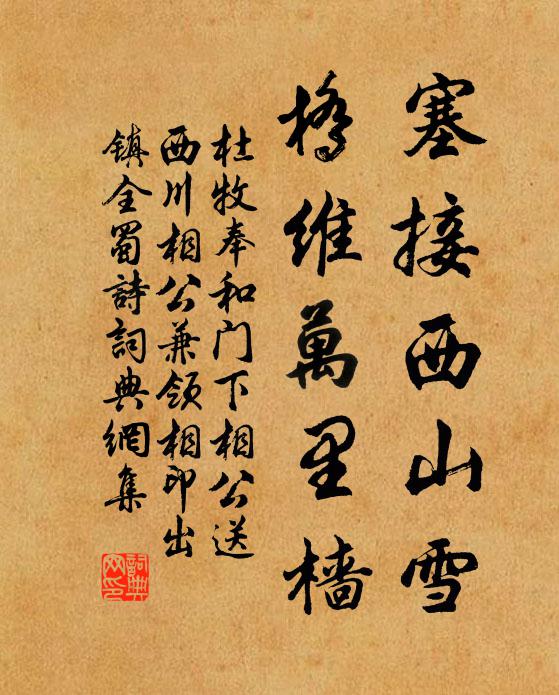 塞接西山雪
橋維萬里檣
杜牧奉和门下相公送
西川相公兼领相印出
镇全蜀詩詞典網集
詞典网印